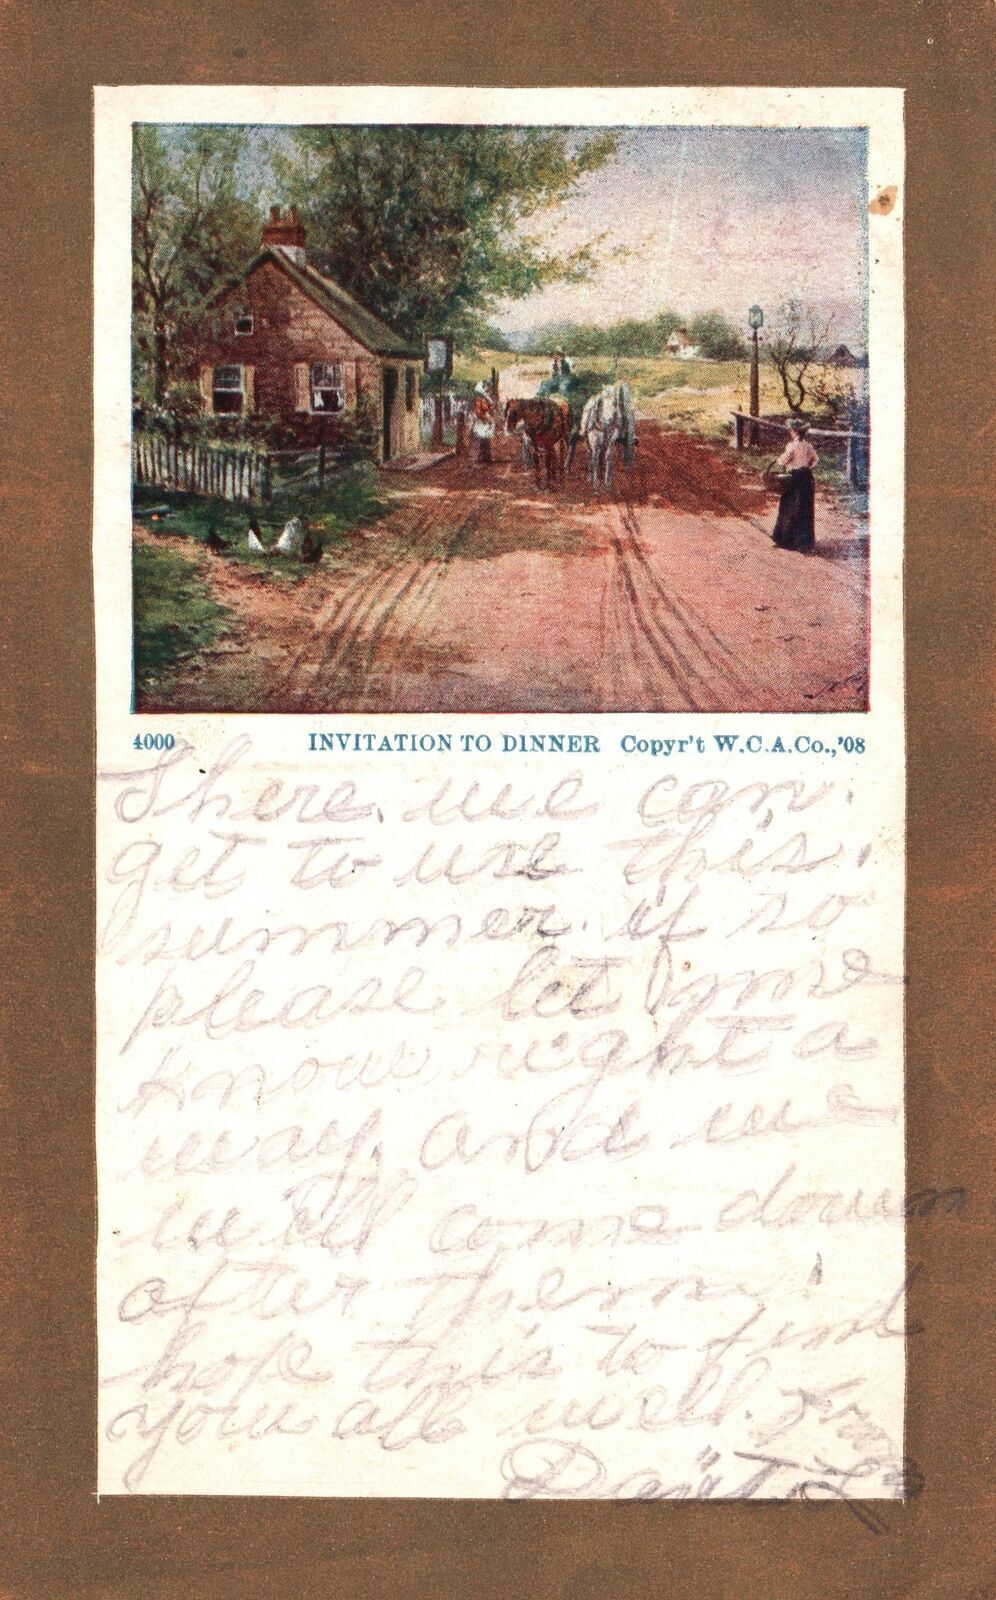 4000 INVITATION TO DINNER Copyr't W.C.A.Co.,'08
There. we can.
get to use this.
summer. if so
please let me
know right a
way. and we
will come down
after them i
hope this to find
you all well. from